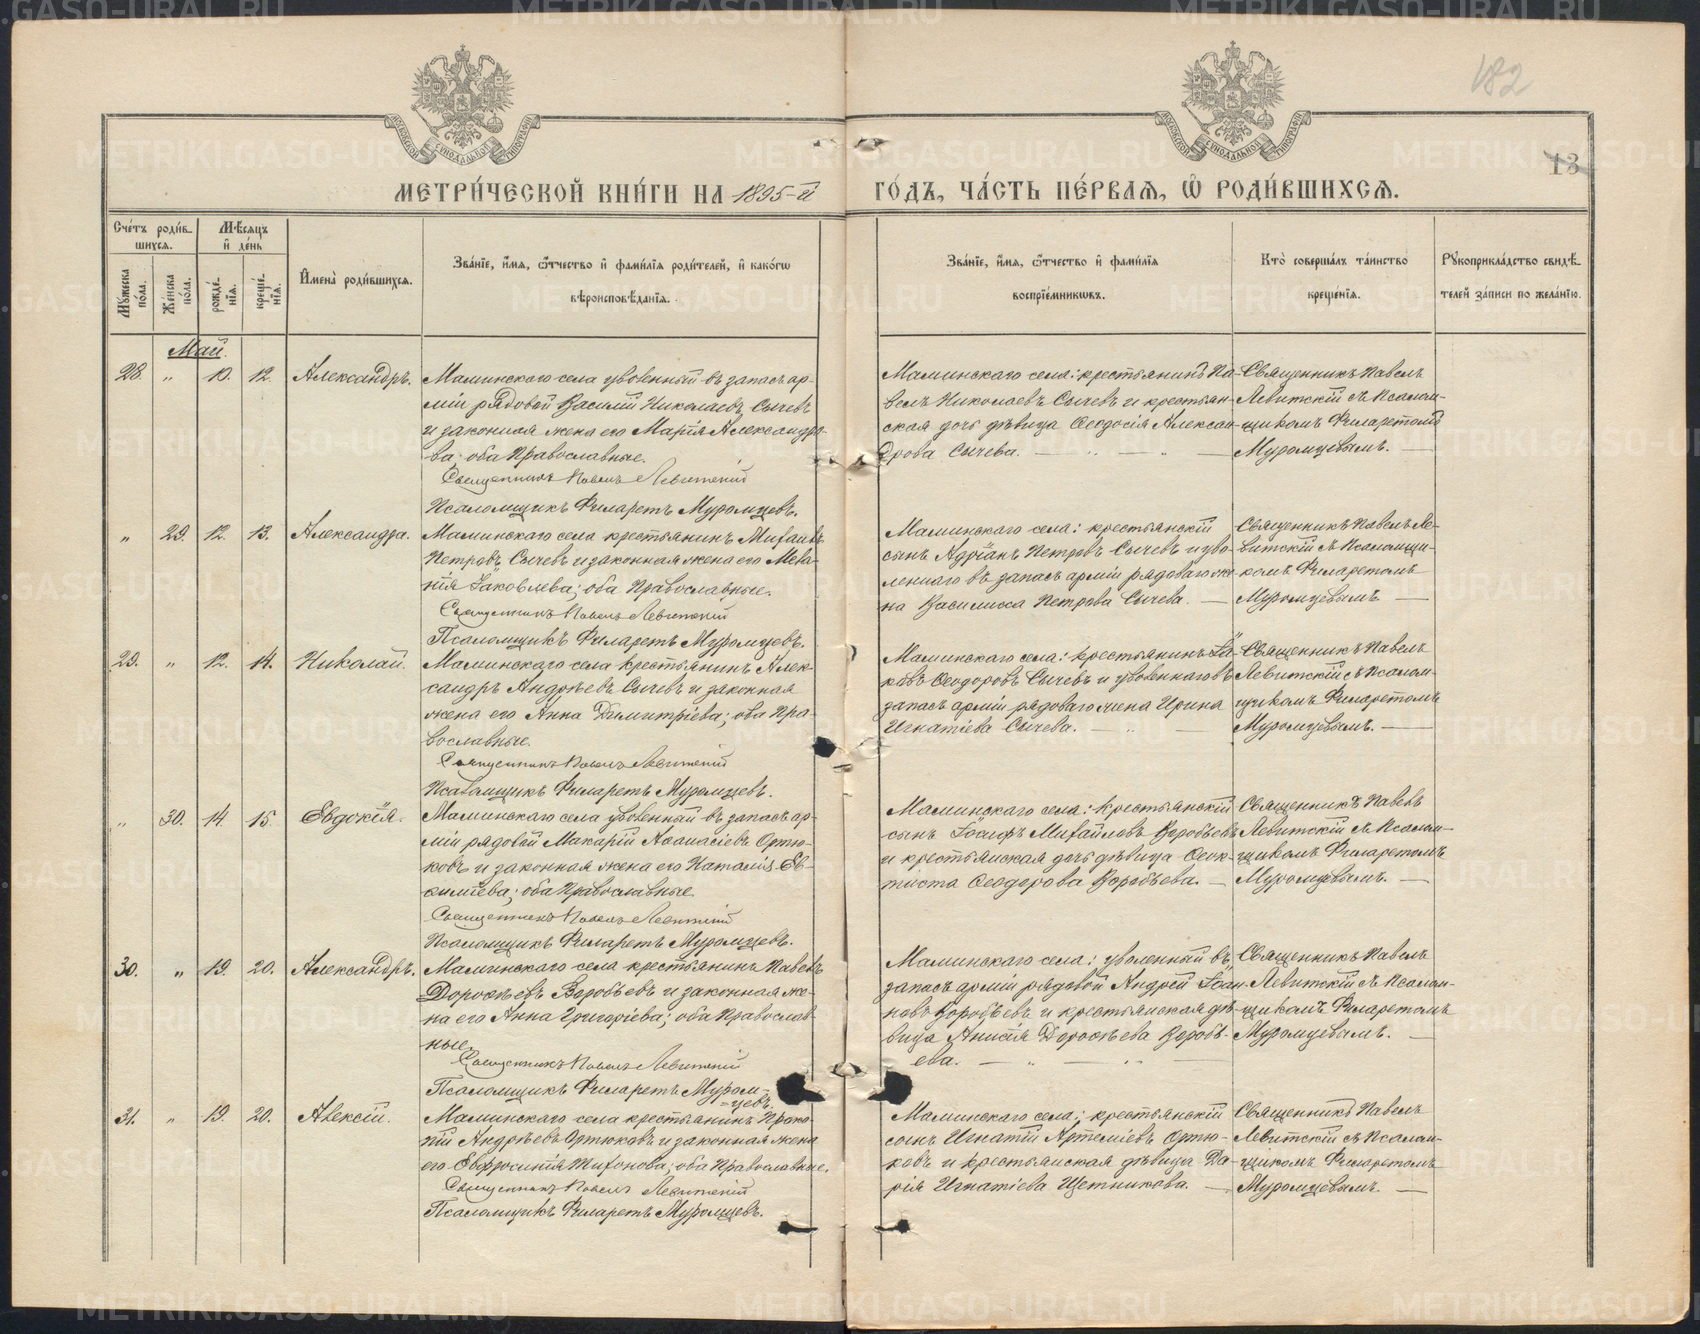 182
13
МЕТРИ́ЧЕСКОЙ КНИ́ГИ НА 1895-й ГО́ДЪ, ЧА́СТЬ ПЕ́РВАЯ, Ѽ РОДИ́ВШИХСЯ.
Сче́тъ роди́в-
шихся.
Мѣ́сяцъ
и҆ де́нь
Мꙋ́жеска по́ла.
Же́нска по́ла.
рожде́-
нїѧ.
креще́-
нїѧ.
И҆мена̀ роди́вшихсѧ.
Зва́нїе, и҆́мѧ, ѻ҆́тчество и҆ фами́лїѧ роди́телей, и҆ како́гѡ
вѣроисповѣ́данїѧ.
Зва́нїе, и҆́мѧ, ѻ҆́тчество и҆ фами́лїѧ
воспрїе́мникѡвъ.
Кто̀ соверша́лъ та́инство
креще́нїѧ.
Рꙋкоприкла́дство свидѣ́-
телей за́писи по жела́нїю.
Май.
28. " 10. 12. Александръ.
Маминскаго села уволенный въ запасъ ар-
міи рядовой Василій Николаевъ Сычевъ
и законная жена его Марія Александро-
ва; оба Православные.
Священникъ Павелъ Левитскій
Псаломщикъ Филаретъ Муромцевъ.
Маминскаго села: крестьянинъ Па-
велъ Николаевъ Сычевъ и крестьян-
ская дочь дѣвица Ѳеодосія Алексан-
дрова Сычева.
Священникъ Павелъ
Левитскій съ Псалом-
щикомъ Филаретомъ
Муромцевымъ.
" 29. 12. 13. Александра.
Маминскаго села крестьянинъ Михаилъ
Петровъ Сычевъ и законная жена его Мела-
нія Іаковлева; оба Православные.
Священникъ Павелъ Левитскій
Псаломщикъ Филаретъ Муромцевъ.
Маминскаго села: крестьянскій
сынъ Адріанъ Петровъ Сычевъ и уво-
леннаго въ запасъ арміи рядоваго же-
на Василисса Петрова Сычева.
Священникъ Павелъ Ле-
витскій съ Псаломщи-
комъ Филаретомъ
Муромцевымъ
29. " 12. 14. Николай.
Маминскаго села крестьянинъ Алек-
сандръ Андреевъ Сычевъ и законная
жена его Анна Димитріева; оба Пра-
вославные.
Священникъ Павелъ Левитскій
Псаломщикъ Филаретъ Муромцевъ.
Маминскаго села: крестьянинъ Іа-
ковъ Ѳеодоровъ Сычевъ и уволеннаго въ
запасъ арміи рядоваго жена Ирина
Игнатіева Сычева.
Священникъ Павелъ
Левитскій съ Псалом-
щикомъ Филаретомъ
Муромцевымъ.
" 30. 14. 15. Евдокія.
Маминскаго села уволенный въ запасъ ар-
міи рядовой Макарій Аѳанасіевъ Ортю-
ковъ и законная жена его Наталія Ев-
симіева; оба Православные.
Священникъ Павелъ Левитскій
Псаломщикъ Филаретъ Муромцевъ.
Маминскаго села: крестьянскій
сынъ Іосифъ Михайловъ Воробьевъ
и крестьянская дочь дѣвица Ѳеок-
тиста Ѳеодорова Воробьева.
Священникъ Павелъ
Левитскій съ Псалом-
щикомъ Филаретомъ
Муромцевымъ.
30. " 19. 20. Александръ.
Маминскаго села крестьянинъ Павелъ
Дороѳеевъ Воробьевъ и законная же-
на его Анна Григоріева; оба Православ-
ные.
Священникъ Павелъ Левитскій
Псаломщикъ Филаретъ Муром-
цевъ.
Маминскаго села: уволенный въ
запасъ арміи рядовой Андрей Іоан-
новъ Воробьевъ и крестьянская дѣ-
вица Анисія Дороѳеева Воробь-
ева.
Священникъ Павелъ
Левитскій съ Псалом-
щикомъ Филаретомъ
Муромцевымъ.
31. " 19. 20. Алексій.
Маминскаго села крестьянинъ Проко-
пій Андреевъ Ортюковъ и законная жена
его Евфросинія Тихонова; оба Православные.
Священникъ Павелъ Левитскій
Псаломщикъ Филаретъ Муромцевъ.
Маминскаго села; крестьянскій
сынъ Игнатій Артеміевъ Ортю-
ковъ и крестьянская дѣвица Да-
рія Игнатіева Щетникова.
Священникъ Павелъ
Левитскій съ Псалом-
щикомъ Филаретомъ
Муромцевымъ.
METRIKI.GASO-URAL.RU